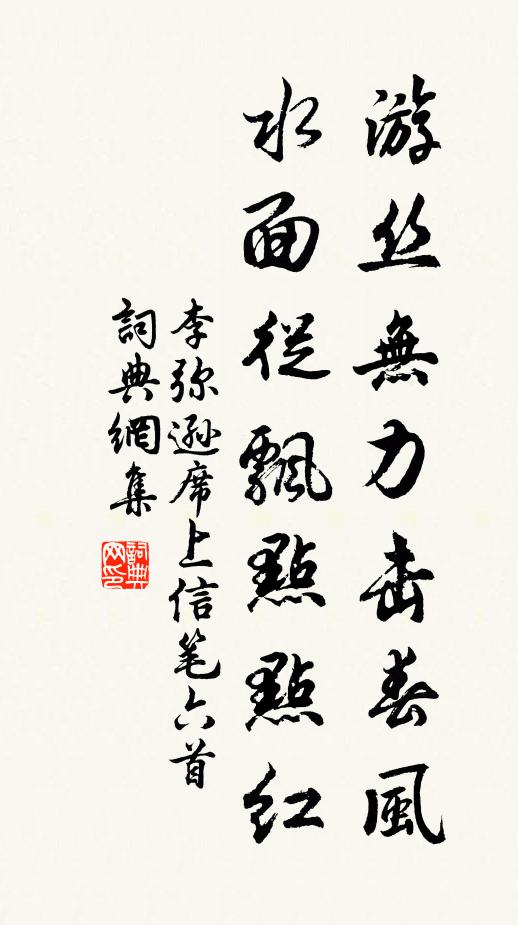 游丝無力击春風
水面從飄點點紅
李弥遜席上信笔六首
詞典網集
詞典网印